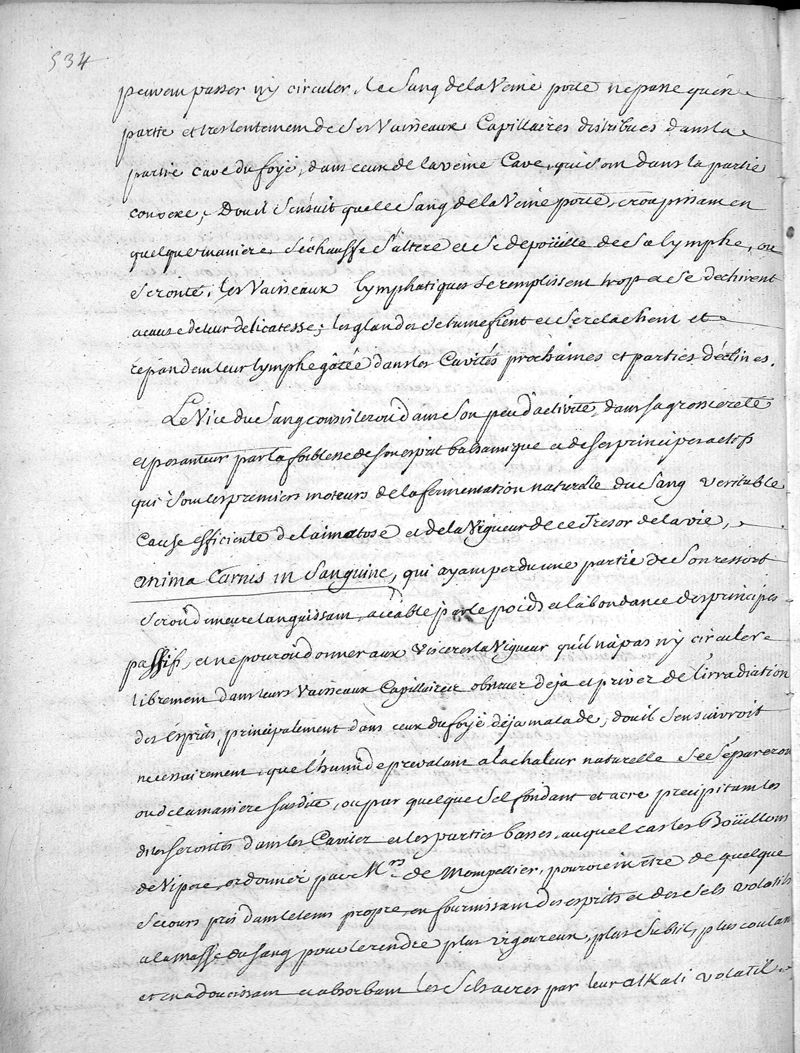 534
peuvent passer n'y circuler, le Sang de la Veine porte ne passe qu'en
partie et tres lentement de ses Vaisseaux Capillaires distribués dans la
partie cave du foye, dans ceux de la veine Cave, qui sont dans la partie
convexe, Dou il s'ensuit que le Sang de la Veine porte, croupissant en
quelque maniere, s'échauffe s'altere et se depoüille de sa lymphe, ou
serosité, les Vaisseaux lymphatiques se remplissent trop et se dechirent
a cause de leur delicatesse; les glandes se tumefient et se relachent et
repandent leur lymphe gâtée dans les Cavités prochaines et parties déclines.
Le Vice du Sang consisteroit dans son peu d'activité, dans sa grossiereté
et pesanteur par la foiblesse de son esprit balsamique et de ses principes actifs
qui sont les premiers moteurs de la fermentation naturelle du Sang veritable
Cause efficiente de la et de la Vigueur de ce Tresor de la vie,
anima Carnis in Sanguine, qui ayant perdu une partie de son ressort
seroit demeuré languissant, accablé par le poids et l'abondance des principes
passifs, et ne pouroit donner aux Visceres la Vigueur qu'il n'a pas n'y circuler
librement dans leurs Vaisseaux Capillaires obstruez deja et privez de l'irradiation
des Esprits, principalement dans ceux du foye deja malade, dou il s'ensuivroit
necessairement, que l'humide prevalant a la chaleur naturelle se separeroit
ou de la maniere susdite, ou par quelque sel fondant et acre precipitant les
dites serosités dans les Cavitez et les parties basses, auquel cas les Boüillons
de Vipere, ordonnéz par Mrs. de Montpellier, pouroient être de quelque
secours pris dans le tems propre, en fournissant des esprits et des Sels volatils
a la masse du Sang pour le rendre plus vigoureux, plus subtil, plus coulant
et en adoucissant et absorbant les Sels acres par leur alkali volatil